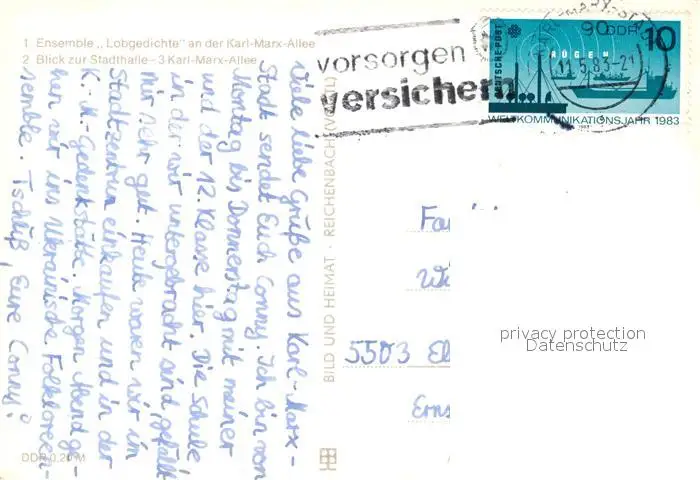 1 Ensemble „Lobgedichte" an der Karl-Marx-Allee
2 Blick zur Stadthalle - 3 Karl-Marx-Allee
Viele liebe Grüße aus Karl-Marx-
Stadt sendet Euch Conny. Ich bin von
Montag bis Donnerstag mit meiner
und der 12. Klasse hier. Die Schule
in der wir untergebracht sind, gefällt
mir sehr gut. Heute waren wir im
Stadtzentrum einkaufen und in der
K.-M.-Gedenkstätte. Morgen Abend ge-
hen wir ins Ukrainische Folkloreen-
semble. Tschüß, Eure Conny!
DDR 0,20 M
BILD UND HEIMAT · REICHENBACH (VOGTL)
vorsorgen
versichern
90
11.5.83-21
DEUTSCHE POST
DDR 10
RÜGEN
WELTKOMMUNIKATIONSJAHR 1983
1983
Fa
5503 El
Erns
privacy protection
Datenschutz